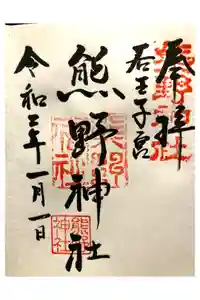 奉拝
若王子宮
熊野神社
令和二年一月一日
熊野神社